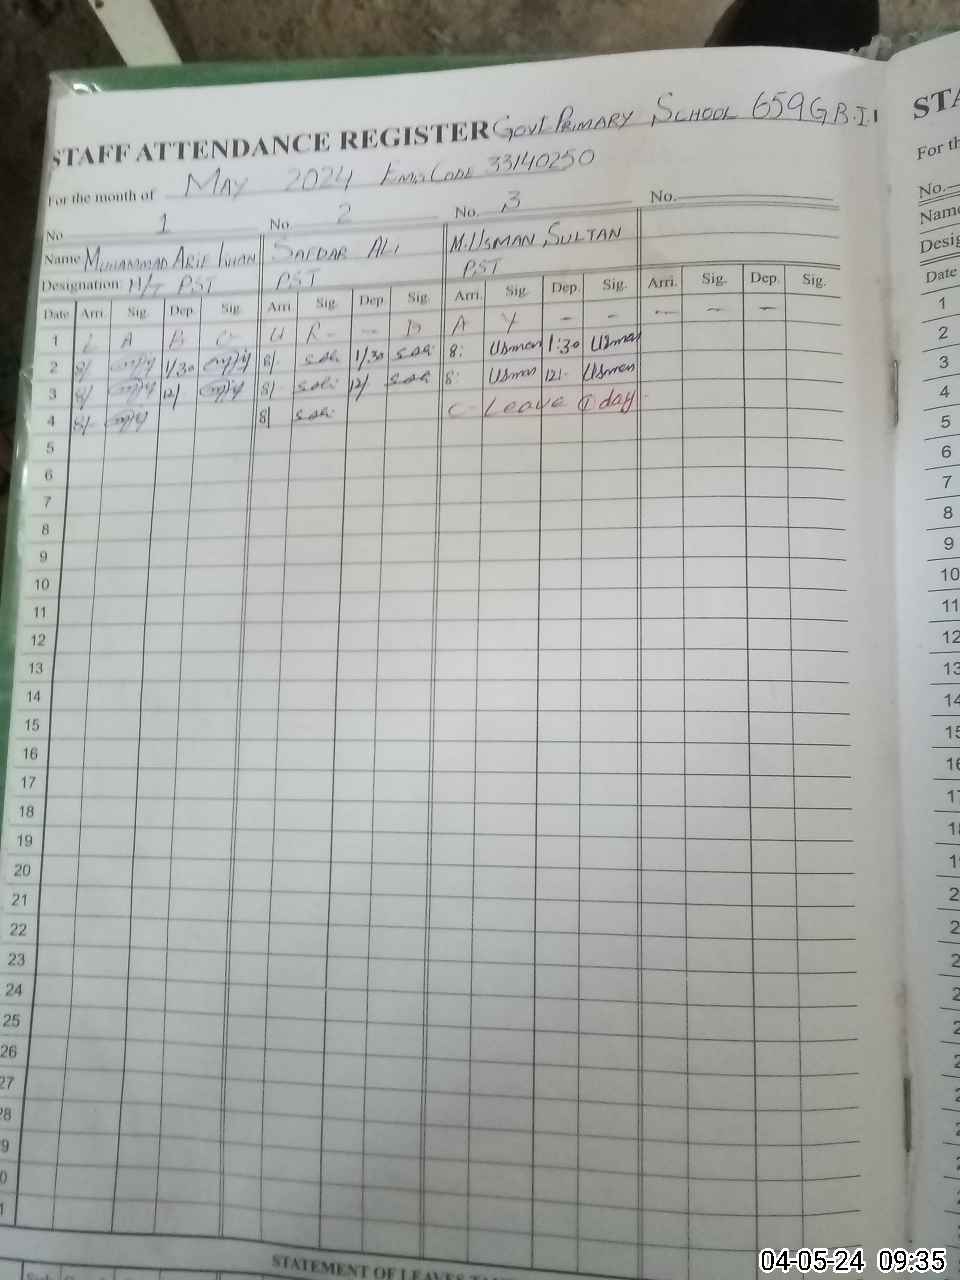 STAFF ATTENDANCE REGISTER Govt PRIMARY SCHOOL 659 G.B.
For the month of MAY 2024 Emis Code 33140250
No 1 No. 2 No. 3 No.
Name MUHAMMAD ARIF KHAN SAFDAR ALI M.USMAN SULTAN
Designation H/T PST PST PST
Date Arri. Sig. Dep. Sig. Arri. Sig. Dep. Sig. Arri. Sig. Dep. Sig. Arri. Sig. Dep. Sig.
1 L A B O U R - - D A Y - - - - -
2 8/- 1/30 8/- 1/30 8: Usman 1:30 Usman
3 8/- 12/- 8/- 12/- 8: Usman 12/- Usman
4 8/- 8/- C-Leave 1 day
5
6
7
8
9
10
11
12
13
14
15
16
17
18
19
20
21
22
23
24
25
26
27
28
29
STATEMENT OF LEAVES
STA
For th
No.
Name
Desig
Date
1
2
3
4
5
6
7
8
9
10
11
12
13
14
04-05-24 09:35